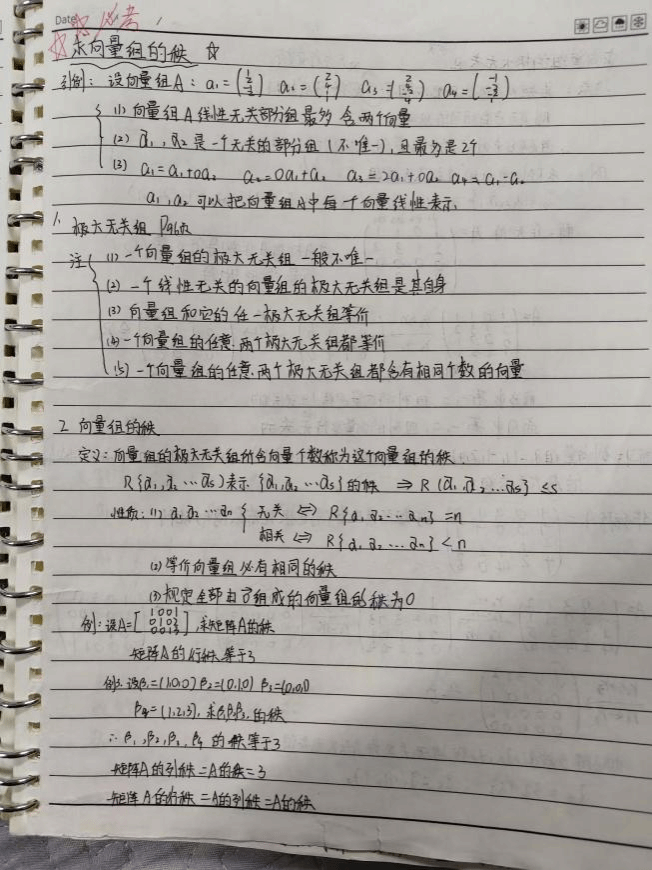 Date
必考
求向量组的秩 ☆
引例: 设向量组A: a₁=( ) a₂=( ) a₃=( ) a₄=( )
(1) 向量组A线性无关部分组最多含两个向量
(2) a₁, a₂ 是一个无关的部分组 (不唯一), 且最多是2个
(3) a₁=a₁+0a₂ a₂=0a₁+a₂ a₃=2a₁+0a₂ a₄=a₁-a₂
a₁, a₂ 可以把向量组A中每一个向量线性表示.
1. 极大无关组 P96页
注 (1) 一个向量组的极大无关组一般不唯一
(2) 一个线性无关的向量组的极大无关组是其自身
(3) 向量组和它的任一极大无关组等价
(4) 一个向量组的任意两个极大无关组都等价
(5) 一个向量组的任意两个极大无关组都含有相同个数的向量
2 向量组的秩
定义: 向量组的极大无关组所含向量个数称为这个向量组的秩.
R{a₁,a₂…as}表示{a₁,a₂…as}的秩 ⇒ R(a₁,a₂,…as)≤s
性质: (1) a₁,a₂…an { 无关 ⇔ R{a₁,a₂…an}=n
相关 ⇔ R{a₁,a₂…an}<n
(2) 等价向量组必有相同的秩
(3) 规定全部由0组成的向量组的秩为0
例: 设A=[ ], 求矩阵A的秩
矩阵A的行秩等于3
例: 设β₁=(1,0,0) β₂=(0,1,0) β₃=(0,0,1)
β₄=(1,2,3), 求 的秩
∴ β₁,β₂,β₃,β₄ 的秩等于3
矩阵A的列秩=A的秩=3
矩阵A的行秩=A的列秩=A的秩